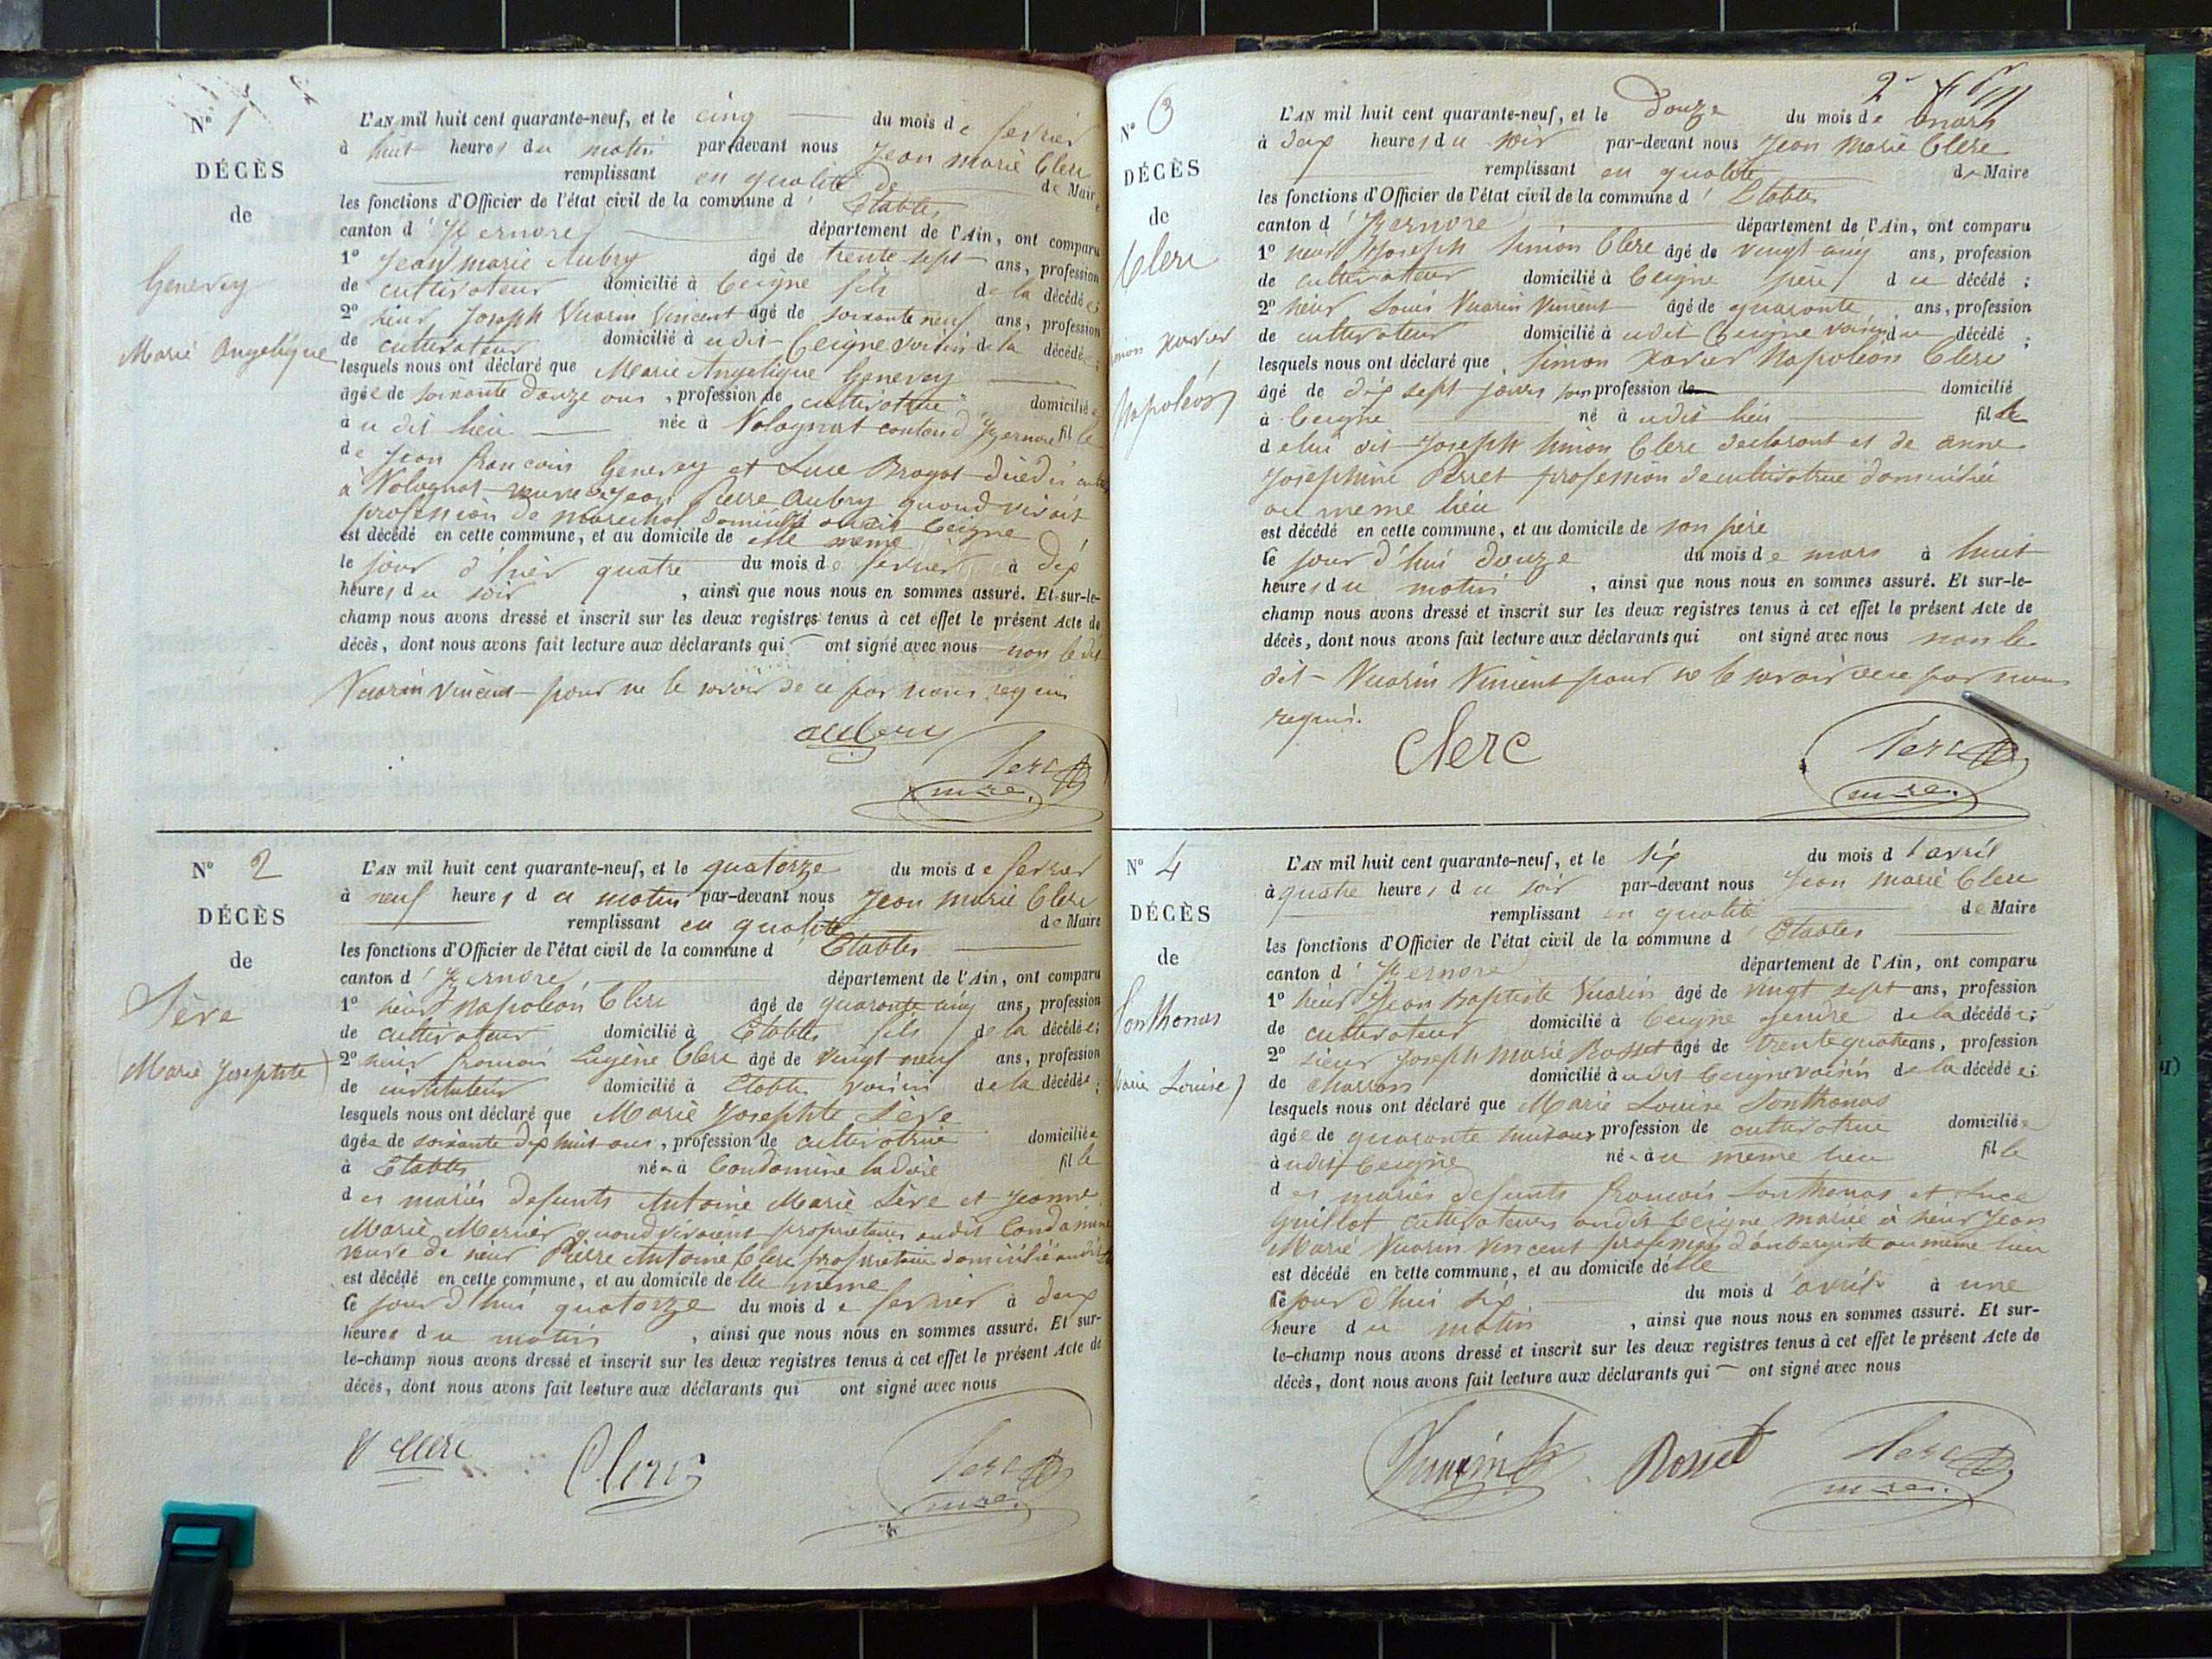 N° 1
DÉCÈS
de
Genevey
Marie Angélique
L'AN mil huit cent quarante-neuf, et le cinq du mois de fevrier
à huit heures du matin par-devant nous Jean marie Clerc
remplissant en qualité de de Maire
les fonctions d'Officier de l'état civil de la commune d' Etables
canton d' Izernore département de l'Ain, ont comparu
1° Jean marie Aubry âgé de trente sept ans, profession
de cultivateur domicilié à Ceigne fils de la décédée;
2° sieur Joseph Vuarin Vincent âgé de soixante neuf ans, profession
de cultivateur domicilié à udit Ceigne voisin de la décédée;
lesquels nous ont déclaré que Marie Angelique Genevey
âgée de soixante douze ans, profession de cultivatrice domiciliée
à u dit lieu née à Volognat canton d'Izernore fille
de Jean francois Genevey et Luce Brogat
à Volognat veuve de Jean Pierre Aubry quand vivait
profession de marechal domicilié audit Ceigne
est décédé en cette commune, et au domicile de elle meme
le jour d'hier quatre du mois de fevrier à dix
heures du soir, ainsi que nous nous en sommes assuré. Et sur-le-
champ nous avons dressé et inscrit sur les deux registres tenus à cet effet le présent Acte de
décès, dont nous avons fait lecture aux déclarants qui ont signé avec nous non le dit
Vuarin Vincent pour ne le savoir de ce par nous requis
aubry
Clerc
mre.
N° 2
DÉCÈS
de
Sève
Marie Josephte
L'AN mil huit cent quarante-neuf, et le quatorze du mois de fevrier
à neuf heures du matin par-devant nous Jean marie Clerc
remplissant en qualité de Maire
les fonctions d'Officier de l'état civil de la commune d' Etables
canton d' Izernore département de l'Ain, ont comparu
1° sieur Napoléon Clerc âgé de quaronte cinq ans, profession
de cultivateur domicilié à Etables fils de la décédée;
2° sieur francois Eugène Clerc âgé de vingt neuf ans, profession
de instituteur domicilié à Etables voisin de la décédée;
lesquels nous ont déclaré que Marie Josephte Sève
âgée de soixante dix huit ans, profession de cultivatrice domiciliée
à Etables née à Condamine ladoie fille
des mariés defunts Antoine Marie Sève et Jeanne
Marie Mernier quand vivaient proprietaires audit Condamine
veuve de sieur Pierre Antoine Clerc proprietaire domicilié audit
est décédé en cette commune, et au domicile de elle même
le jour d'hui quatorze du mois de fevrier à deux
heures du matin, ainsi que nous nous en sommes assuré. Et sur-
le-champ nous avons dressé et inscrit sur les deux registres tenus à cet effet le présent Acte de
décès, dont nous avons fait lecture aux déclarants qui ont signé avec nous
Clerc
Clerc
Clerc
mre.
N° 3
DÉCÈS
de
Clerc
Xavier
Napoléon
L'AN mil huit cent quarante-neuf, et le douze du mois de mars
à deux heures du soir par-devant nous Jean Marie Clerc
remplissant en qualité de Maire
les fonctions d'Officier de l'état civil de la commune d' Etables
canton d' Izernore département de l'Ain, ont comparu
1° sieur Joseph Simon Clerc âgé de vingt cinq ans, profession
de cultivateur domicilié à Ceigne père du décédé;
2° sieur Louis Vuarin Vincent âgé de quaronte ans, profession
de cultivateur domicilié à udit Ceigne voisin du décédé;
lesquels nous ont déclaré que Simon Xavier Napoléon Clerc
âgé de dix sept jours sans profession de domicilié
à Ceigne né à udit lieu fils
de lui dit Joseph Simon Clerc declarant et de anne
Joséphine Perret profession de cultivatrice domiciliée
au meme lieu
est décédé en cette commune, et au domicile de son père
le jour d'hui douze du mois de mars à huit
heures du matin, ainsi que nous nous en sommes assuré. Et sur-le-
champ nous avons dressé et inscrit sur les deux registres tenus à cet effet le présent Acte de
décès, dont nous avons fait lecture aux déclarants qui ont signé avec nous non le
dit Vuarin Vincent pour ne le savoir de ce par nous
requis.
Clerc
Clerc
mre.
N° 4
DÉCÈS
de
Sonthonas
Marie Louise
L'AN mil huit cent quarante-neuf, et le six du mois d'avril
à quatre heures du soir par-devant nous Jean Marie Clerc
remplissant en qualité de Maire
les fonctions d'Officier de l'état civil de la commune d' Etables
canton d' Izernore département de l'Ain, ont comparu
1° sieur Jean Baptiste Vuarin âgé de vingt sept ans, profession
de cultivateur domicilié à Ceigne gendre de la décédée;
2° sieur Joseph Marie Rosset âgé de trente quatre ans, profession
de charron domicilié à udit Ceigne voisin de la décédée;
lesquels nous ont déclaré que Marie Louise Sonthonas
âgée de quaronte huit ans profession de cultivatrice domiciliée
à udit Ceigne née à u meme lieu fille
des mariés defunts francois Sonthonas et Luce
Guillot cultivateurs audit Ceigne mariée à sieur Jean
Marie Vuarin Vincent profession d'aubergiste au même lieu
est décédé en cette commune, et au domicile d'elle
le jour d'hui six du mois d'avril à une
heure du matin, ainsi que nous nous en sommes assuré. Et sur-
le-champ nous avons dressé et inscrit sur les deux registres tenus à cet effet le présent Acte de
décès, dont nous avons fait lecture aux déclarants qui ont signé avec nous
Vuarin
Rosset
Clerc
mre.